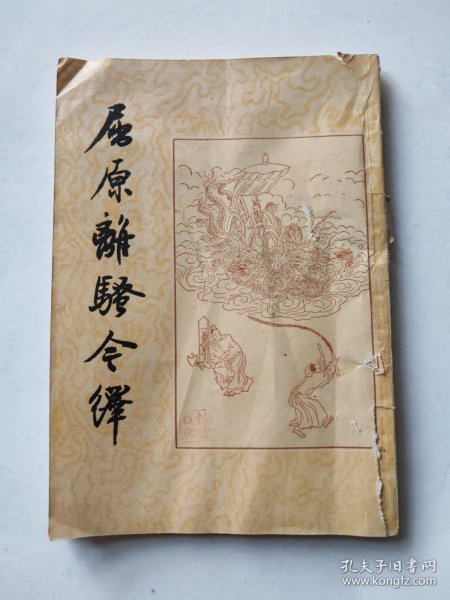 屈原離騷今繹
孔夫子旧书网
www.kongfz.com